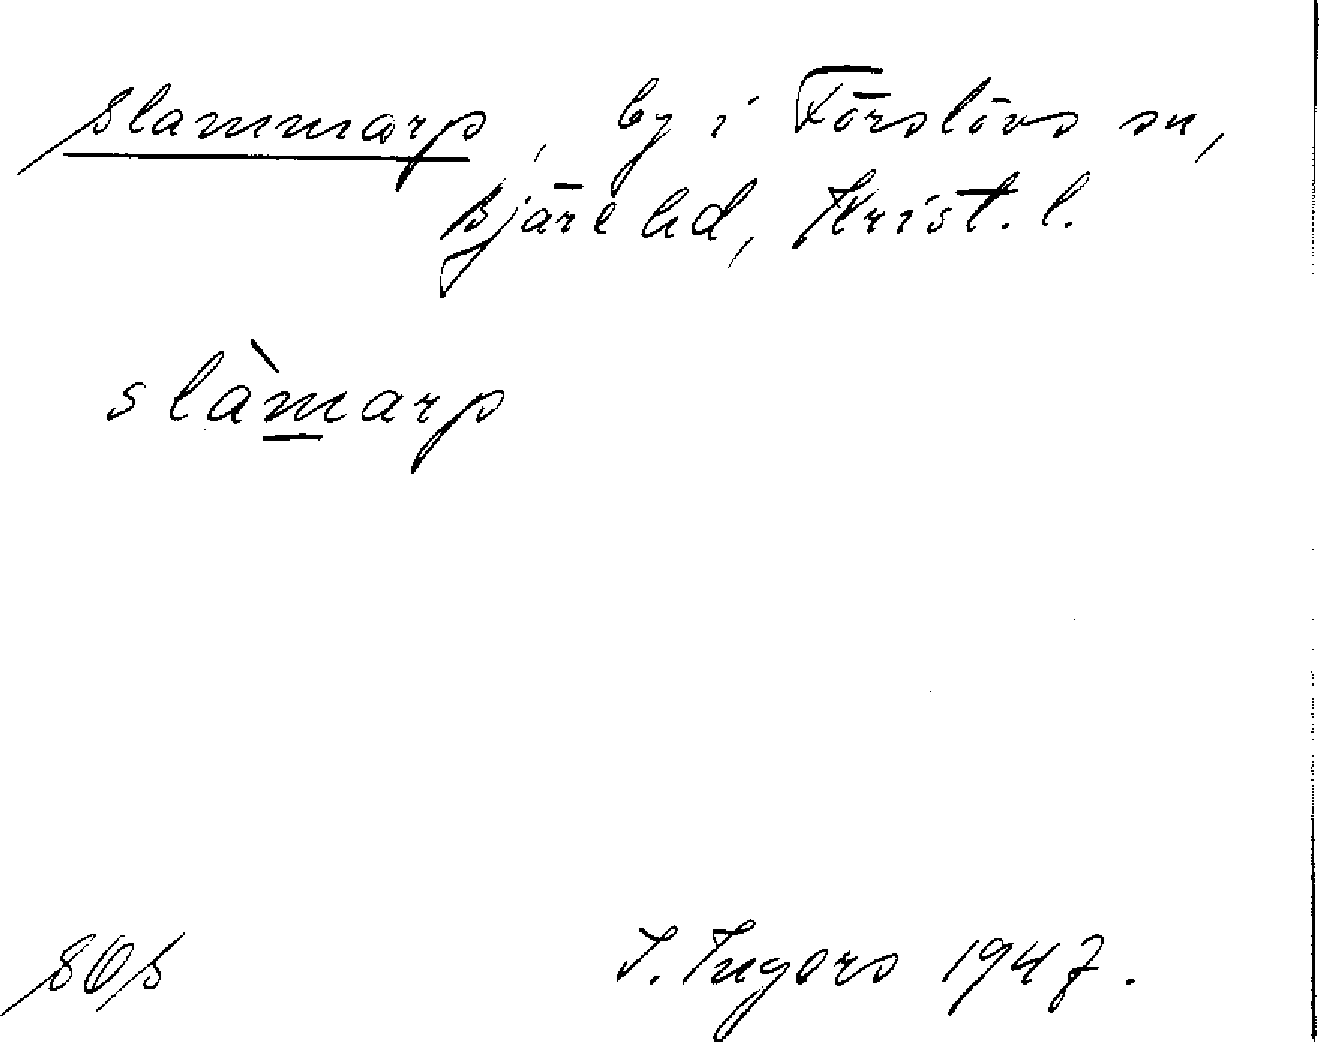 Slammarp, by i Förslövs sn,
Bjäre hd, Krist. l.
slàmarp
SOS
I. Ingers 1947.